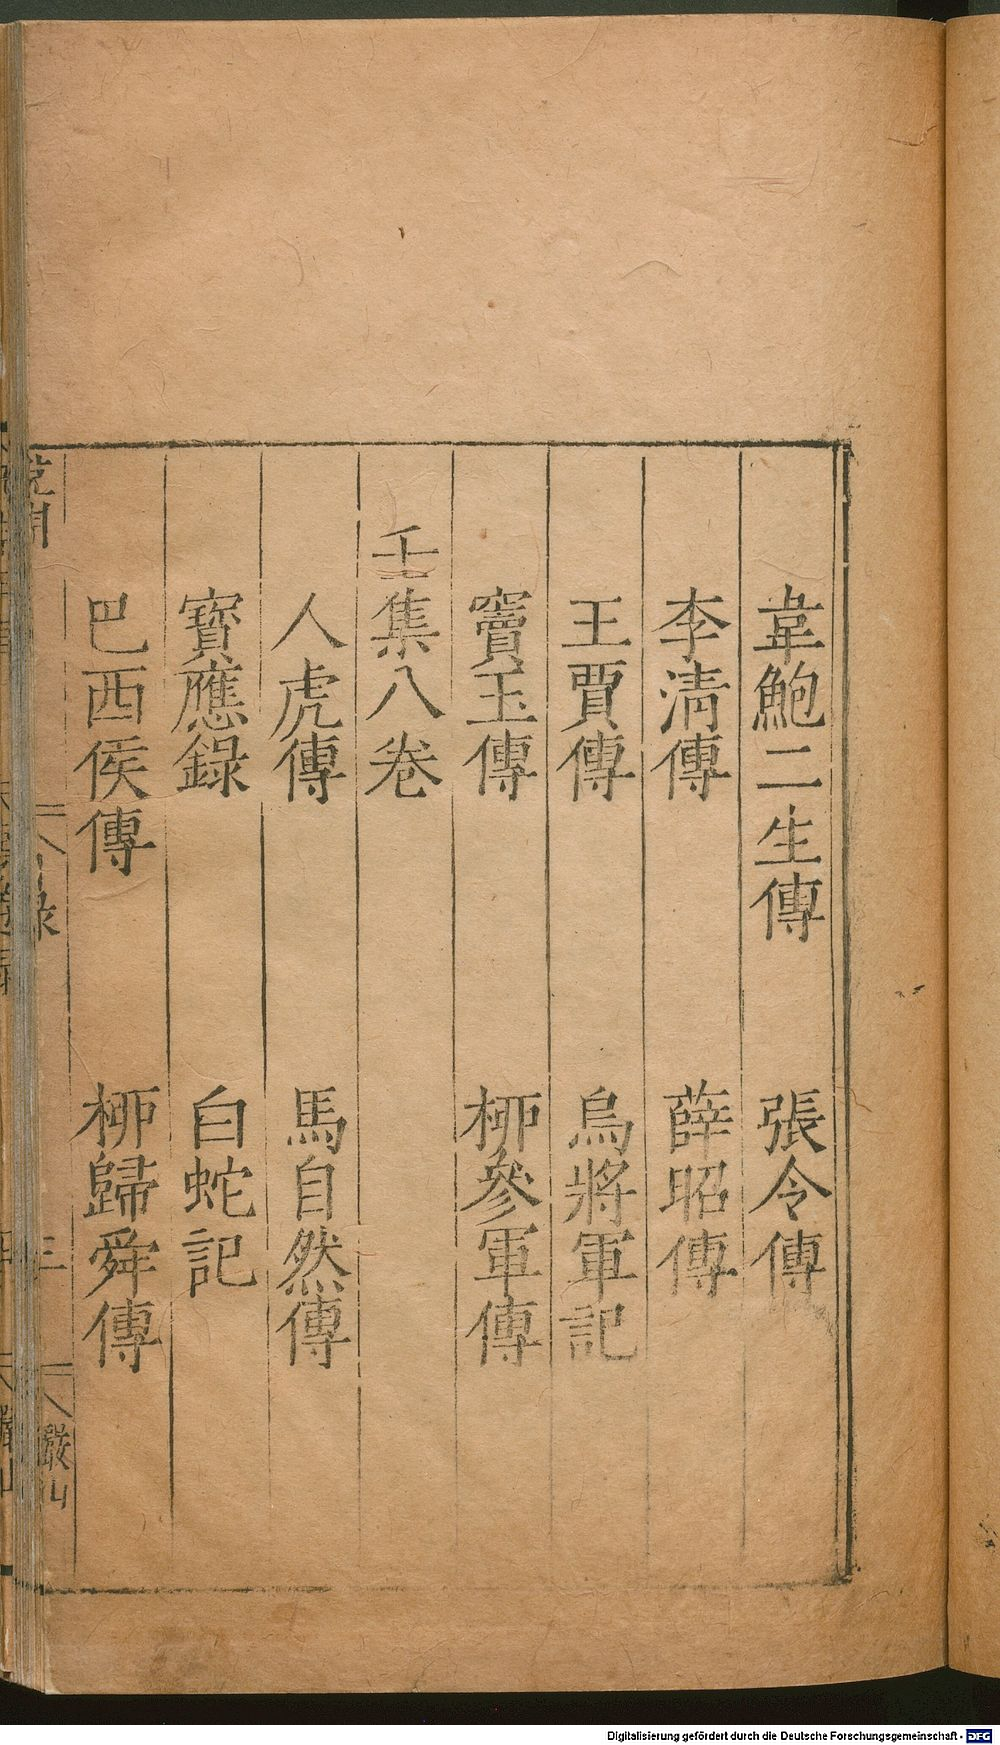 韋鮑二生傳　張令傳
李淸傳　薛昭傳
王賈傳　烏將軍記
竇玉傳　柳參軍傳
壬集八卷
人虎傳　馬自然傳
寶應錄　白蛇記
巴西侯傳　柳歸舜傳
錄
三
巖山
Digitalisierung gefördert durch die Deutsche Forschungsgemeinschaft - DFG